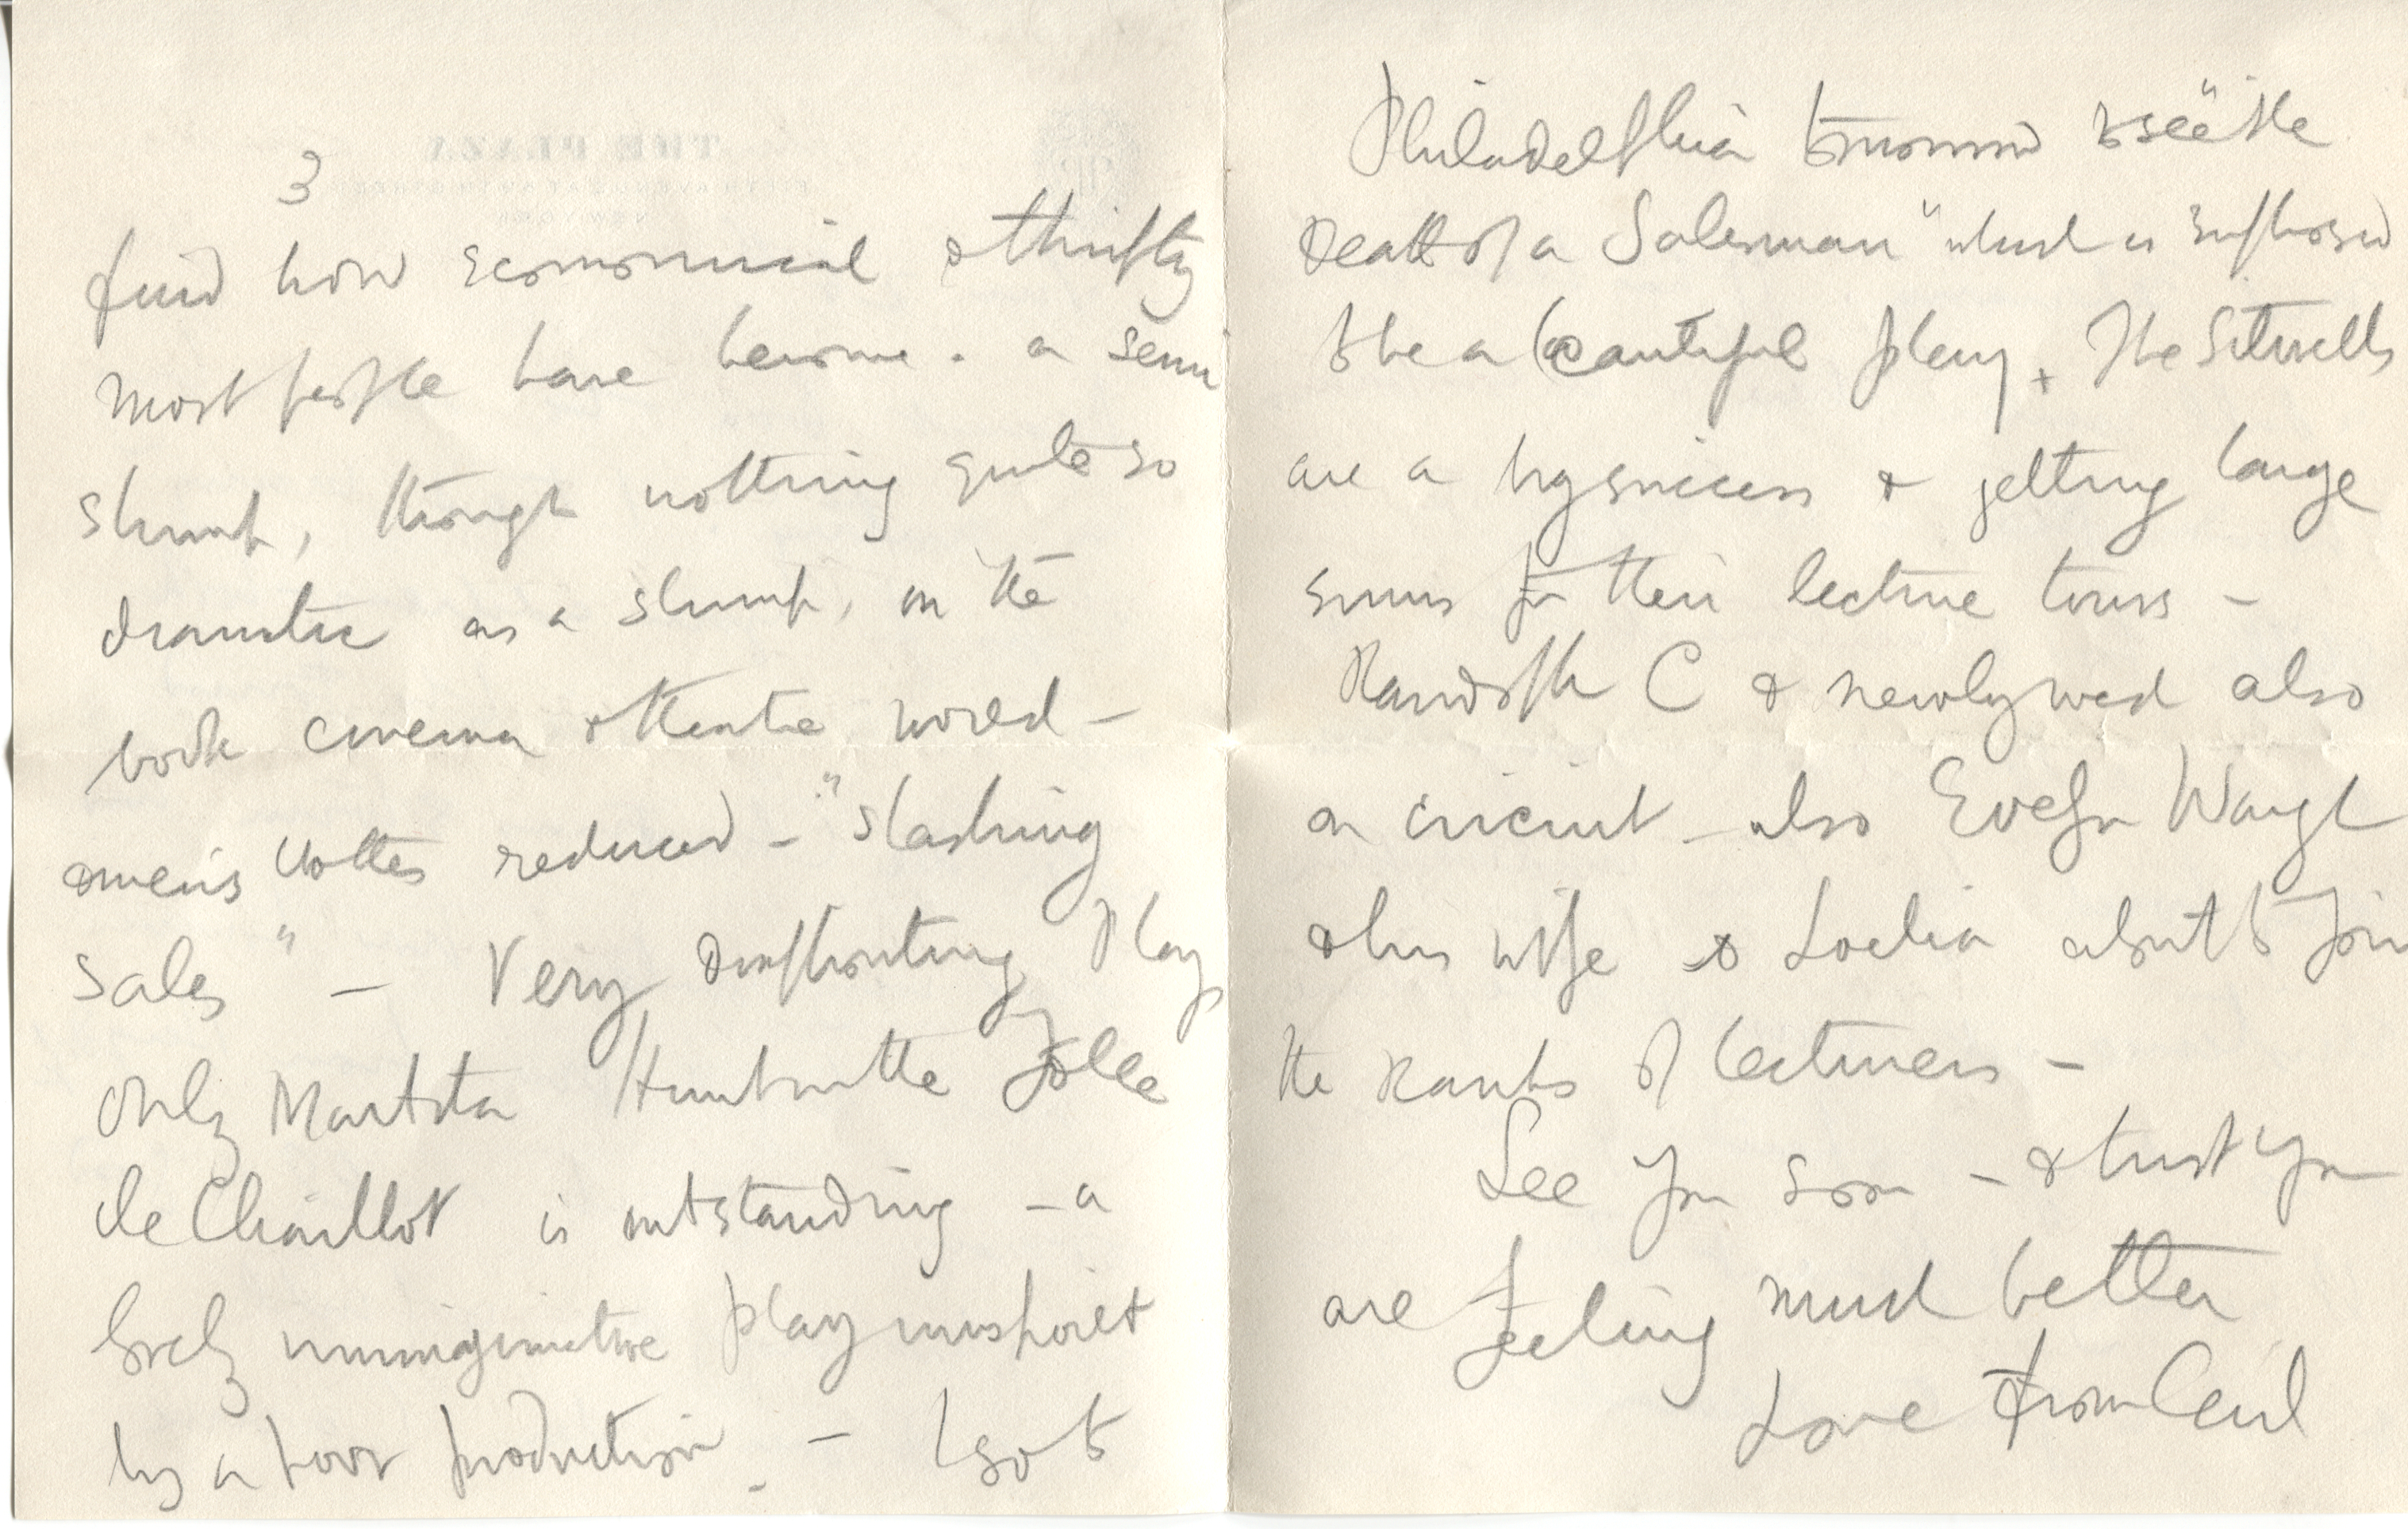 3
find how economical & thrifty
most people have become. a semi
slump, though nothing quite so
dramatic as a slump, in the
book cinema & theatre world –
& men's clothes reduced – "slashing
sales" – Very disappointing plays
only Martita Hunt in the Folle
de Chaillot is outstanding – a
lovely imaginative play
by a poor production. – I go to
Philadelphia tomorrow to see "the
Death of a Salesman" which is supposed
to be a beautiful play. The Sitwells
are a big success & getting large
sums for their lecture tours –
Randolph C & newlywed also
on circuit – also Evelyn Waugh
& his wife & Loelia about to join
the ranks of lecturers –
See you soon – & trust you
are feeling much better
Love from Cecil
THE PLAZA
FIFTH AVENUE AT 59TH STREET
NEW YORK